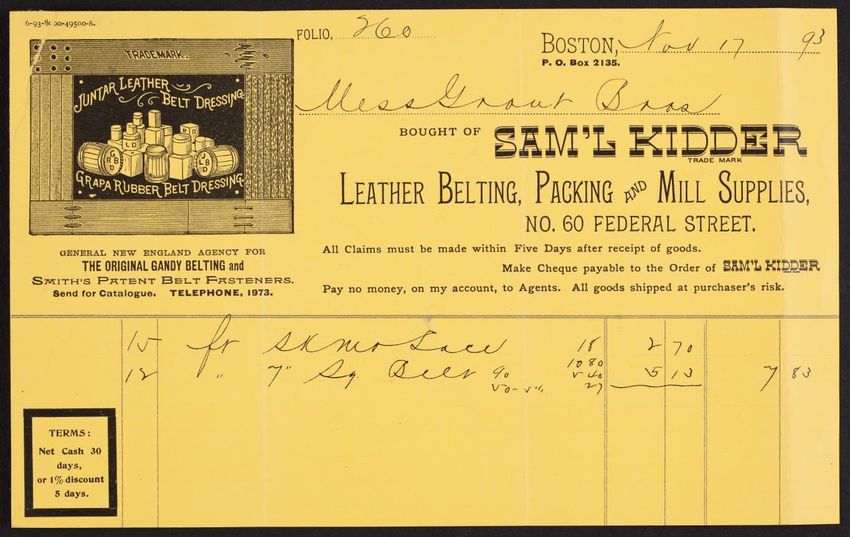 6-93-8000-49500-S.
FOLIO, 260
BOSTON, Nov 17 93
P. O. Box 2135.
TRADEMARK.
JUNTAR LEATHER
BELT DRESSING
GRAPA RUBBER BELT DRESSING.
Mess Grout Bros
BOUGHT OF SAM'L KIDDER
TRADE MARK
LEATHER BELTING, PACKING AND MILL SUPPLIES,
NO. 60 FEDERAL STREET.
GENERAL NEW ENGLAND AGENCY FOR
THE ORIGINAL GANDY BELTING and
SMITH'S PATENT BELT FASTENERS.
Send for Catalogue. TELEPHONE, 1973.
All Claims must be made within Five Days after receipt of goods.
Make Cheque payable to the Order of SAM'L KIDDER
Pay no money, on my account, to Agents. All goods shipped at purchaser's risk.
15 ft Lace 18 2 70
12 " 7" Sq. Belt 90 10 80 5 13 7 83
50-5% 5 40
27
TERMS:
Net Cash 30
days,
or 1% discount
5 days.